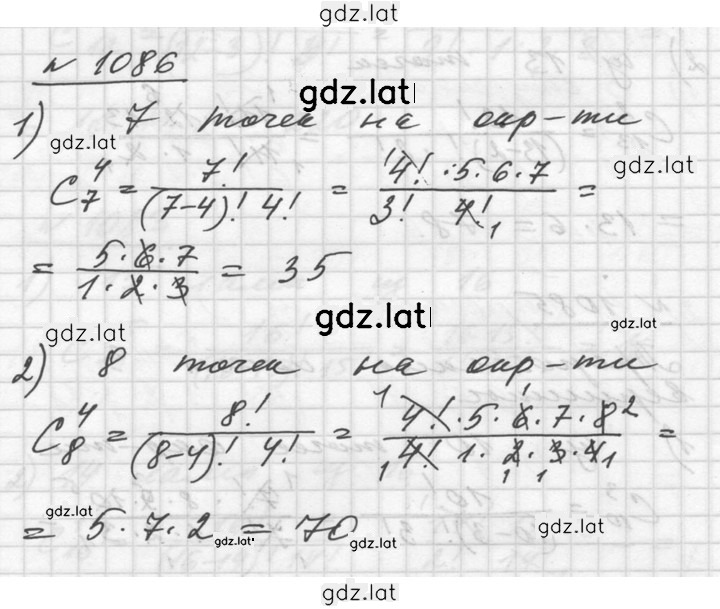 gdz.lat
№ 1086
gdz.lat
1) 7 точек на окр-ти
gdz.lat
C₇⁴ = 7! / (7-4)! 4! = 4! · 5 · 6 · 7 / 3! 4! =
gdz.lat
= 5 · 6 · 7 / 1 · 2 · 3 = 35
gdz.lat
gdz.lat
gdz.lat
2) 8 точек на окр-ти
C₈⁴ = 8! / (8-4)! 4! = 4! · 5 · 6 · 7 · 8 / 4! 1 · 2 · 3 · 4 =
gdz.lat
= 5 · 7 · 2 = 70
gdz.lat
gdz.lat
gdz.lat
gdz.lat